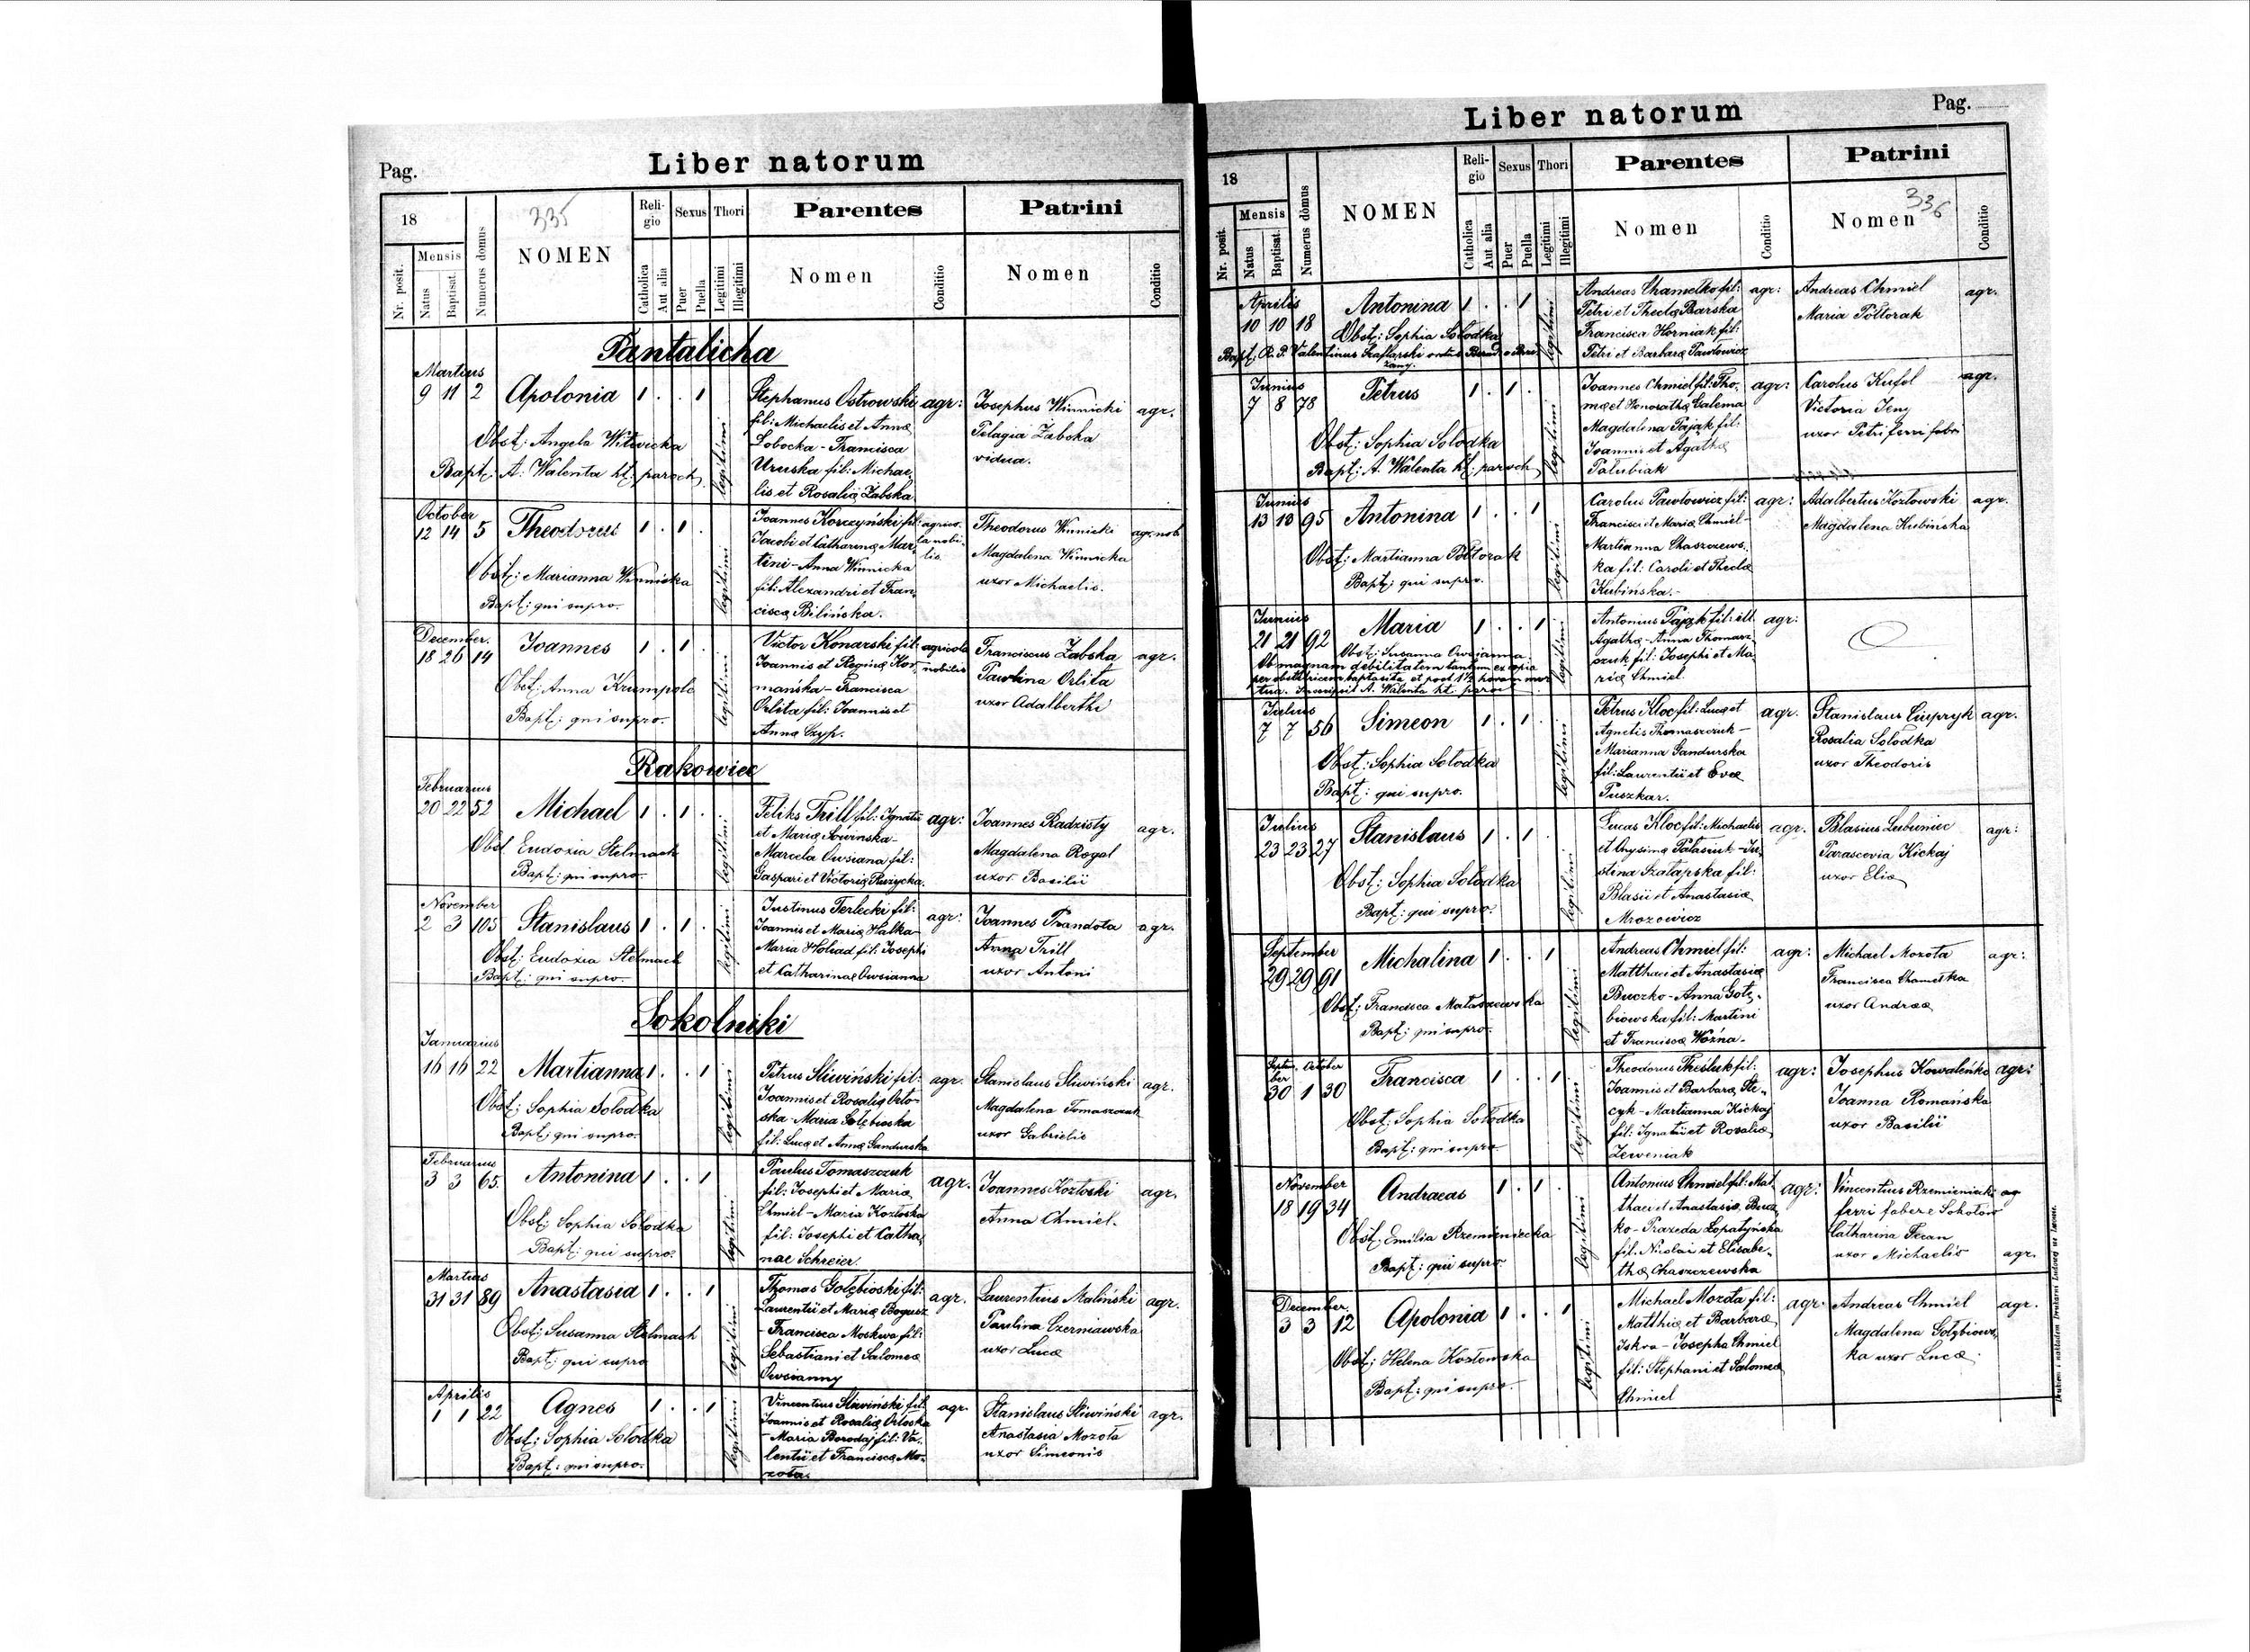 Pag.
Liber natorum
18
Mensis
Nr. posit.
Natus
Baptisat.
Numerus domus
335
NOMEN
Religio
Catholica
Aut alia
Sexus
Puer
Puella
Thori
Legitimi
Illegitimi
Parentes
Nomen
Conditio
Patrini
Nomen
Conditio
Pantalicha
Martius
9 11 2 Apolonia 1 . . 1
Obst: Angela Witwicka
Bapt: A. Walenta lt: paroch.
legitimi
Stephanus Ostrowski
fil: Michaelis et Annæ
Lobocka - Francisca
Uruska fil: Michae
lis et Rosaliæ Zabska
agr:
Josephus Winnicki
Pelagia Zaboka
vidua.
agr.
October
12 14 5 Theodorus 1 . 1 .
Obst: Marianna Winnicka
Bapt: qui supro.
legitimi
Joannes Korczyński fil:
Jacobi et Catharinæ Mar
tini - Anna Winnicka
fil: Alexandri et Fran
ciscæ Bilińska.
agrico
la nobi
lis
Theodorus Winnicki
Magdalena Winnicka
uxor Michaelis.
agr. nob
December.
18 26 14 Joannes 1 . 1 .
Obst: Anna Krumpole
Bapt: qui supro.
legitimi
Victor Konarski fil:
Joannis et Reginæ Kor
mańska - Francisca
Orlita fil: Joannis et
Annæ Czyp.
agricola
nobilis
Franciscus Zabska
Pawlina Orlita
uxor Adalberthi
agr.
Rakowiec
Februarius
20 22 52 Michael 1 . 1 .
Obst Eudoxia Stelmach
Bapt: qui supro.
legitimi
Feliks Trill fil: Ignatii
et Mariæ Sowinska -
Marcela Owsiana fil:
Gaspari et Victoriæ Ruzycka.
agr:
Joannes Radzisty
Magdalena Rogal
uxor Basilii
agr.
November
2 3 105 Stanislaus 1 . 1 .
Obst: Eudoxia Stelmach
Bapt: qui supro.
legitimi
Justinus Terlecki fil:
Joannis et Mariæ Halka
Maria Holiad fil: Josephi
et Catharinæ Owsianna
agr:
Joannes Prandota
Anna Trill
uxor Antoni
agr.
Sokolniki
Januarius
16 16 22 Martianna 1 . . 1
Obst: Sophia Solodka
Bapt: qui supro.
legitimi
Petrus Sliwiński fil:
Joannis et Rosaliæ Orlo
ska - Maria Gołębioska
fil: Lucæ et Annæ Gandurska
agr.
Stanislaus Sliwiński
Magdalena Tomaszczuk
uxor Gabrielis
agr.
Februarius
3 3 65. Antonina 1 . . 1
Obst: Sophia Solodka
Bapt: qui supro.
legitimi
Paulus Tomaszczuk
fil: Josephi et Mariæ
Chmiel - Maria Kozłoska
fil: Josephi et Catha
nae Schreier.
agr.
Joannes Kozłoski
Anna Chmiel.
agr.
Martius
31 31 89 Anastasia 1 . . 1
Obst: Susanna Stelmach
Bapt: qui supro
legitimi
Thomas Gołębioski fil:
Laurentii et Mariæ Bogusz
- Francisca Moskwa fil:
Sebastiani et Salomeæ
Owsianny
agr.
Laurentius Maliński
Paulina Czerniawska
uxor Lucæ
agr.
Aprilis
1 1 22 Agnes 1 . . 1
Obst: Sophia Solodka
Bapt: qui supro.
legitimi
Vincentius Sliwiński fil
Joannis et Rosaliæ Orloska
- Maria Borodaj fil: Va
lentii et Franciscæ Mo
zota.
agr.
Stanislaus Sliwiński
Anastasia Mozota
uxor Simeonis
agr.
Liber natorum
Pag.
18
Mensis
Nr. posit.
Natus
Baptisat.
Numerus domus
NOMEN
Religio
Catholica
Aut alia
Sexus
Puer
Puella
Thori
Legitimi
Illegitimi
Parentes
Nomen
Conditio
Patrini
336
Nomen
Conditio
Aprilis
10 10 18 Antonina 1 . . 1
Obst: Sophia Solodka
Bapt: R. P. Valentinus
legitimi
Andreas Chamełko fil:
Petri et Theclæ Barska
Francisca Horniak fil:
Petri et Barbaræ Pawłowicz
agr:
Andreas Chmiel
Maria Półtorak
agr.
Junius
7 8 78 Petrus 1 . 1 .
Obst: Sophia Solodka
Bapt: A. Walenta lt: paroch
legitimi
Joannes Chmiel fil: Tho
mæ et Honorathæ Galema
Magdalena Pająk fil:
Joannis et Agathæ
Patubiak
agr:
Carolus Kufel
Victoria Jeny
uxor Petri ferri fabri
agr.
Junius
13 13 95 Antonina 1 . . 1
Obst: Martianna Półtorak
Bapt: qui supro.
legitimi
Carolus Pawłowicz fil:
Francisci et Mariæ Chmiel -
Martianna Chaszczews
ka fil: Caroli et Theclæ
Kubińska. -
agr:
Adalbertus Kozłowski
Magdalena Kubińska
agr.
Junius
21 21 92 Maria 1 . . 1
Obst: Susanna Owsianna
Ob magnam debilitatem tantum ex copia
per obstetricem baptasita et post 1½ horam mor
tua. Inscripsit A. Walenta lt. paroc
legitimi
Antonius Pająk fil: ill
Agathæ - Anna Thomasz
czuk fil: Josephi et Ma
riæ Chmiel.
agr:
Julius
7 7 56 Simeon 1 . 1 .
Obst: Sophia Solodka
Bapt: qui supro.
legitimi
Petrus Kloc fil: Lucæ et
Agnetis Thomaszczuk -
Marianna Gandurska
fil: Laurentii et Evæ
Puszkar.
agr.
Stanislaus Ciupryk
Rosalia Solodka
uxor Theodoris
agr.
Julius
23 23 27 Stanislaus 1 . 1 .
Obst: Sophia Solodka
Bapt: qui supro.
legitimi
Lucas Kloc fil: Michaelis
et Onysimæ Palasiuk - Ju
stina Szatapska fil:
Blasii et Anastasiæ
Mrozowicz
agr.
Blasius Lubiniec
Parascevia Kickaj
uxor Eliæ
agr:
September
29 29 91 Michalina 1 . . 1
Obst: Francisca Mataszewska
Bapt: qui supro.
legitimi
Andreas Chmiel fil:
Matthæi et Anastasiæ
Buczko - Anna Gołę
biowska fil: Martini
et Franciscæ Woźna -
agr:
Michael Mozota
Francisca Chamełka
uxor Andreæ
agr:
Septem
ber October
30 1 30 Francisca 1 . . 1
Obst: Sophia Solodka
Bapt: qui supro.
legitimi
Theodorus Thesluk fil:
Joannis et Barbaræ Ste
cyk - Martianna Kickaj
fil: Ignatii et Rosaliæ
Zeweniak
agr:
Josephus Kowaleńko
Joanna Romańska
uxor Basilii
agr:
November
18 19 34 Andraeas 1 . 1 .
Obst: Emilia Rzemieniecka
Bapt: qui supro
legitimi
Antonius Chmiel fil: Mat
thaei et Anastasiæ Bucz
ko - Praxeda Lopatyńska
fil: Nicolai et Elisabe
thæ Chaszczewska
agr:
Vincentius Rzemieniecki ag
ferri faber e Sokolow
Catharina Fecan
uxor Michaelis
agr.
December.
3 3 12 Apolonia 1 . . 1
Obst: Helena Kozłowska
Bapt: qui supro.
legitimi
Michael Mozota fil:
Matthiæ et Barbaræ
Iskra - Josepha Chmiel
fil: Stephani et Salomeæ
Chmiel
agr.
Andreas Chmiel
Magdalena Gołybiows
ka uxor Lucæ.
agr.
Drukiem i nakładem Drukarni Ludowej we Lwowie.